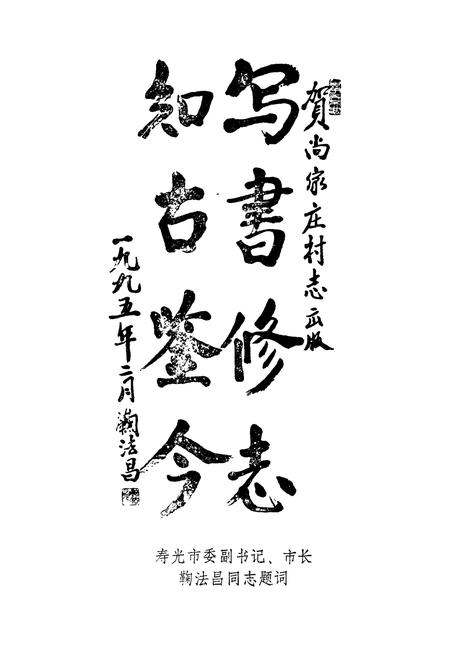 贺尚家庄村志出版
写書修志
知古鉴今
一九九五年二月鞠法昌
寿光市委副书记、市长
鞠法昌同志题词